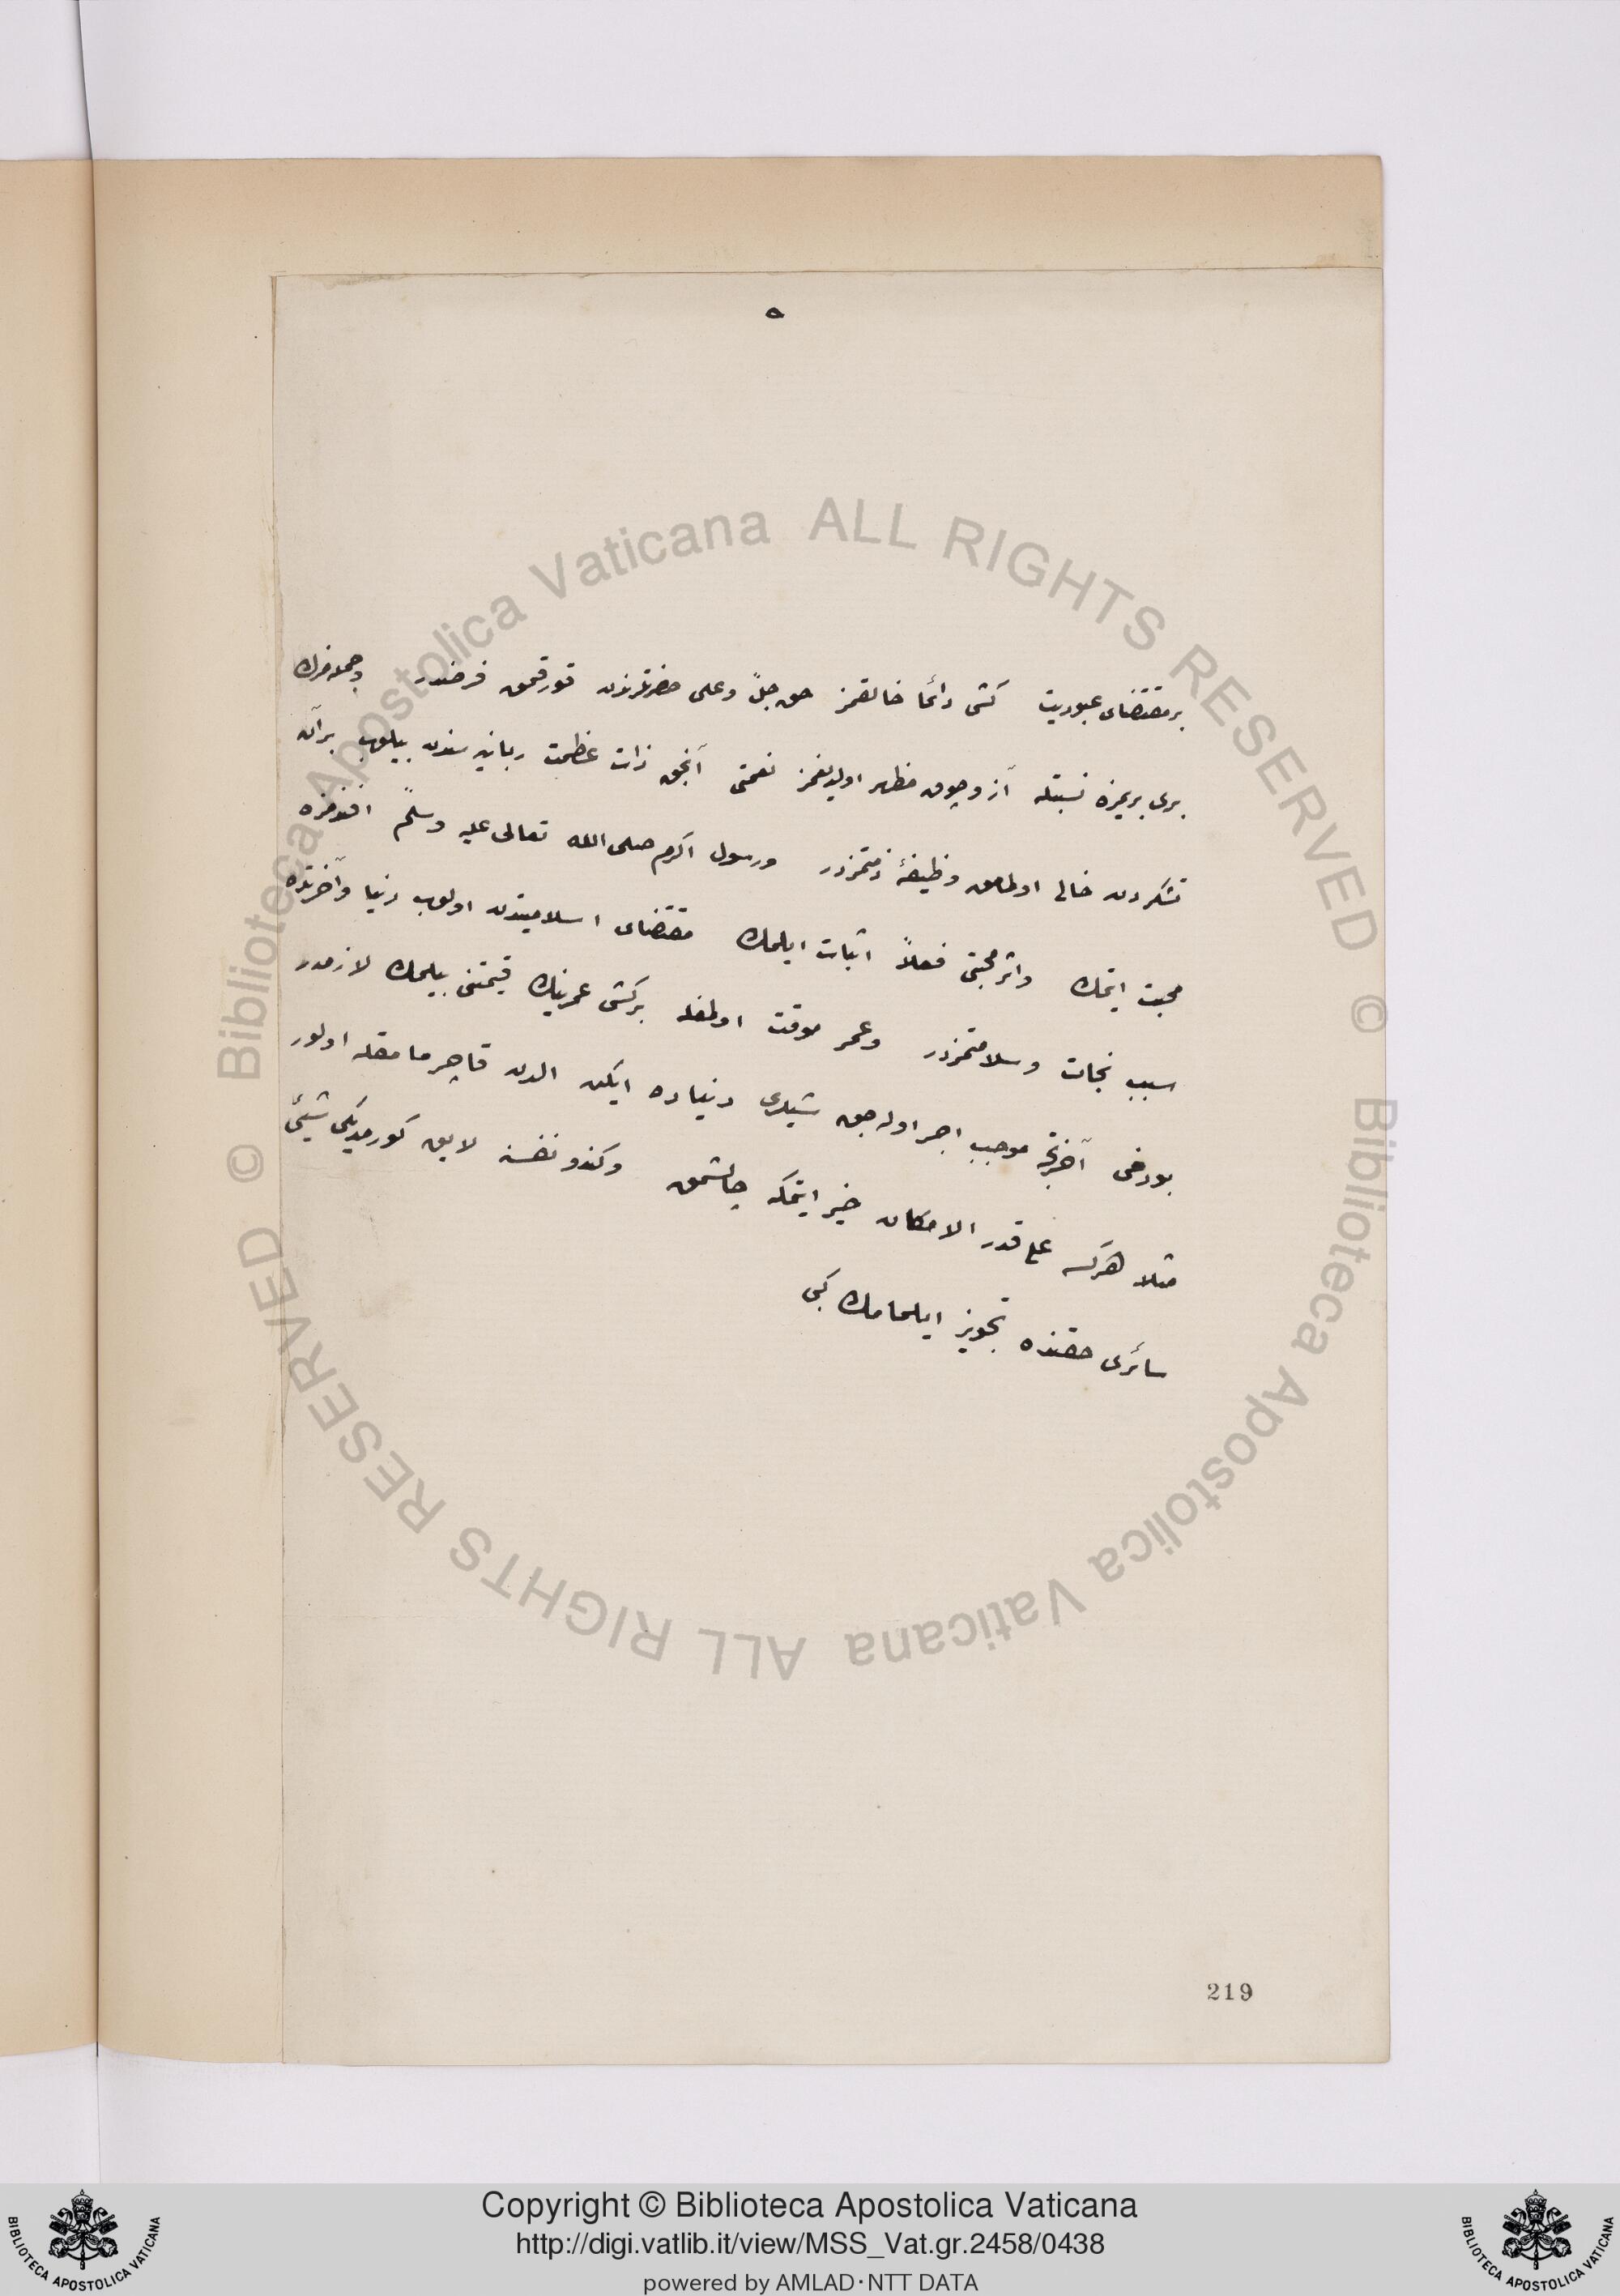 ه
بر مقتضای عبودیت کشی دائما خالقمز حق جلّ وعلی حضرتلرندن قورقمق فرضدر وجمله‌مزك
بری بریمزه نسبتله آز وچوق مظهر اولدیغمز نعمتی آنجق ذات عظمت ربانیه سندن بیلوب بر آن
تشكردن خالی اولمامق وظیفهٔ ذمتمزدر ورسول اکرم صلی الله تعالی علیه وسلّم افندمزه
محبت ایتمك واثر محبتی فعلاً اثبات ایلمك مقتضای اسلامیتدن اولوب دنیا وآخرتده
سبب نجات وسلامتمزدر وعمر موقت اولمغله بر کشی عمرینك قیمتنی بیلمك لازمدر
بودخی آخرتجه موجب اجر اوله جق شیلری دنیاده ایكن الدن قاچرمامقله اولور
مثلا هركسه علی قدر الامكان خیر ایتمكه چالشمق وكندو نفسنه لایق كورمدیكی شیئی
سائری حقنده تجویز ایلمامك كبی
219
Biblioteca Apostolica Vaticana ALL RIGHTS RESERVED ©
Biblioteca Apostolica Vaticana ALL RIGHTS RESERVED ©
Copyright © Biblioteca Apostolica Vaticana
http://digi.vatlib.it/view/MSS_Vat.gr.2458/0438
powered by AMLAD·NTT DATA
BIBLIOTECA APOSTOLICA VATICANA
BIBLIOTECA APOSTOLICA VATICANA